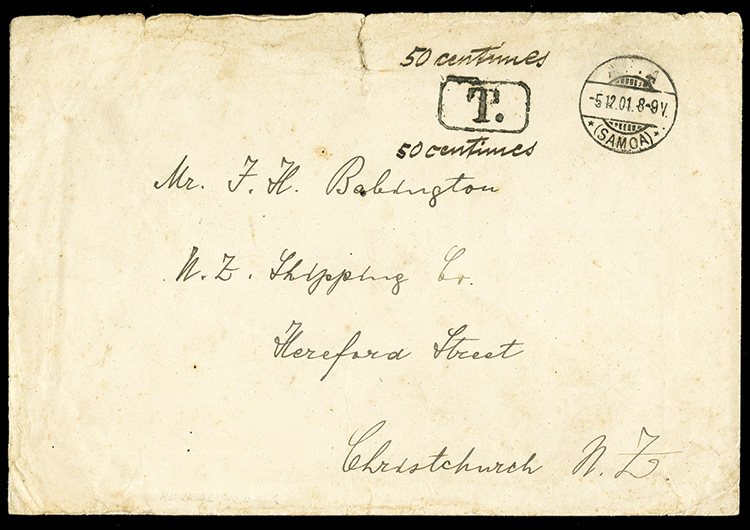 50 centimes
T.
50 centimes
-5.12.01.8-9V.
(SAMOA)
Mr. F. H. Babington
N. Z. Shipping Co.
Hereford Street
Christchurch N. Z